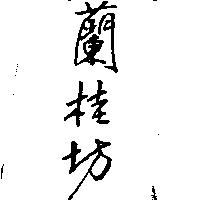 蘭桂坊